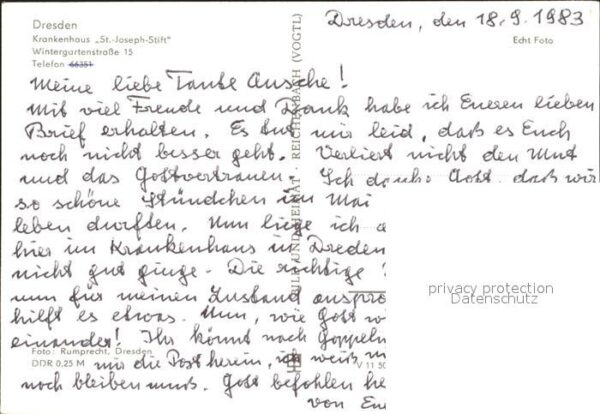 Dresden, den 18.9.1983
Dresden
Krankenhaus „St.-Joseph-Stift"
Wintergartenstraße 15
Telefon 66351
Echt Foto
Meine liebe Tante Ansche!
Mit viel Freude und Dank habe ich Eueren lieben
Brief erhalten. Es tut mir leid, daß es Euch
noch nicht besser geht. Verliert nicht den Mut
und das Gottvertrauen. Ich danke Gott, daß wir
so schöne Stündchen im Mai
leben durften. Nun liege ich
hier im Krankenhaus in Dresden
nicht gut ginge. Die richtige
nun für meinen Zustand anspro
hilft es etwas. Nun, wie Gott w
einander! Ihr könnt nach Goppeln
mir die Post herein, ich weiß
noch bleiben muß. Gott befohlen
von Eu
Foto: Rumprecht, Dresden
DDR 0,25 M
V 11 50
BILD UND HEIMAT · REICHENBACH (VOGTL)
privacy protection
Datenschutz